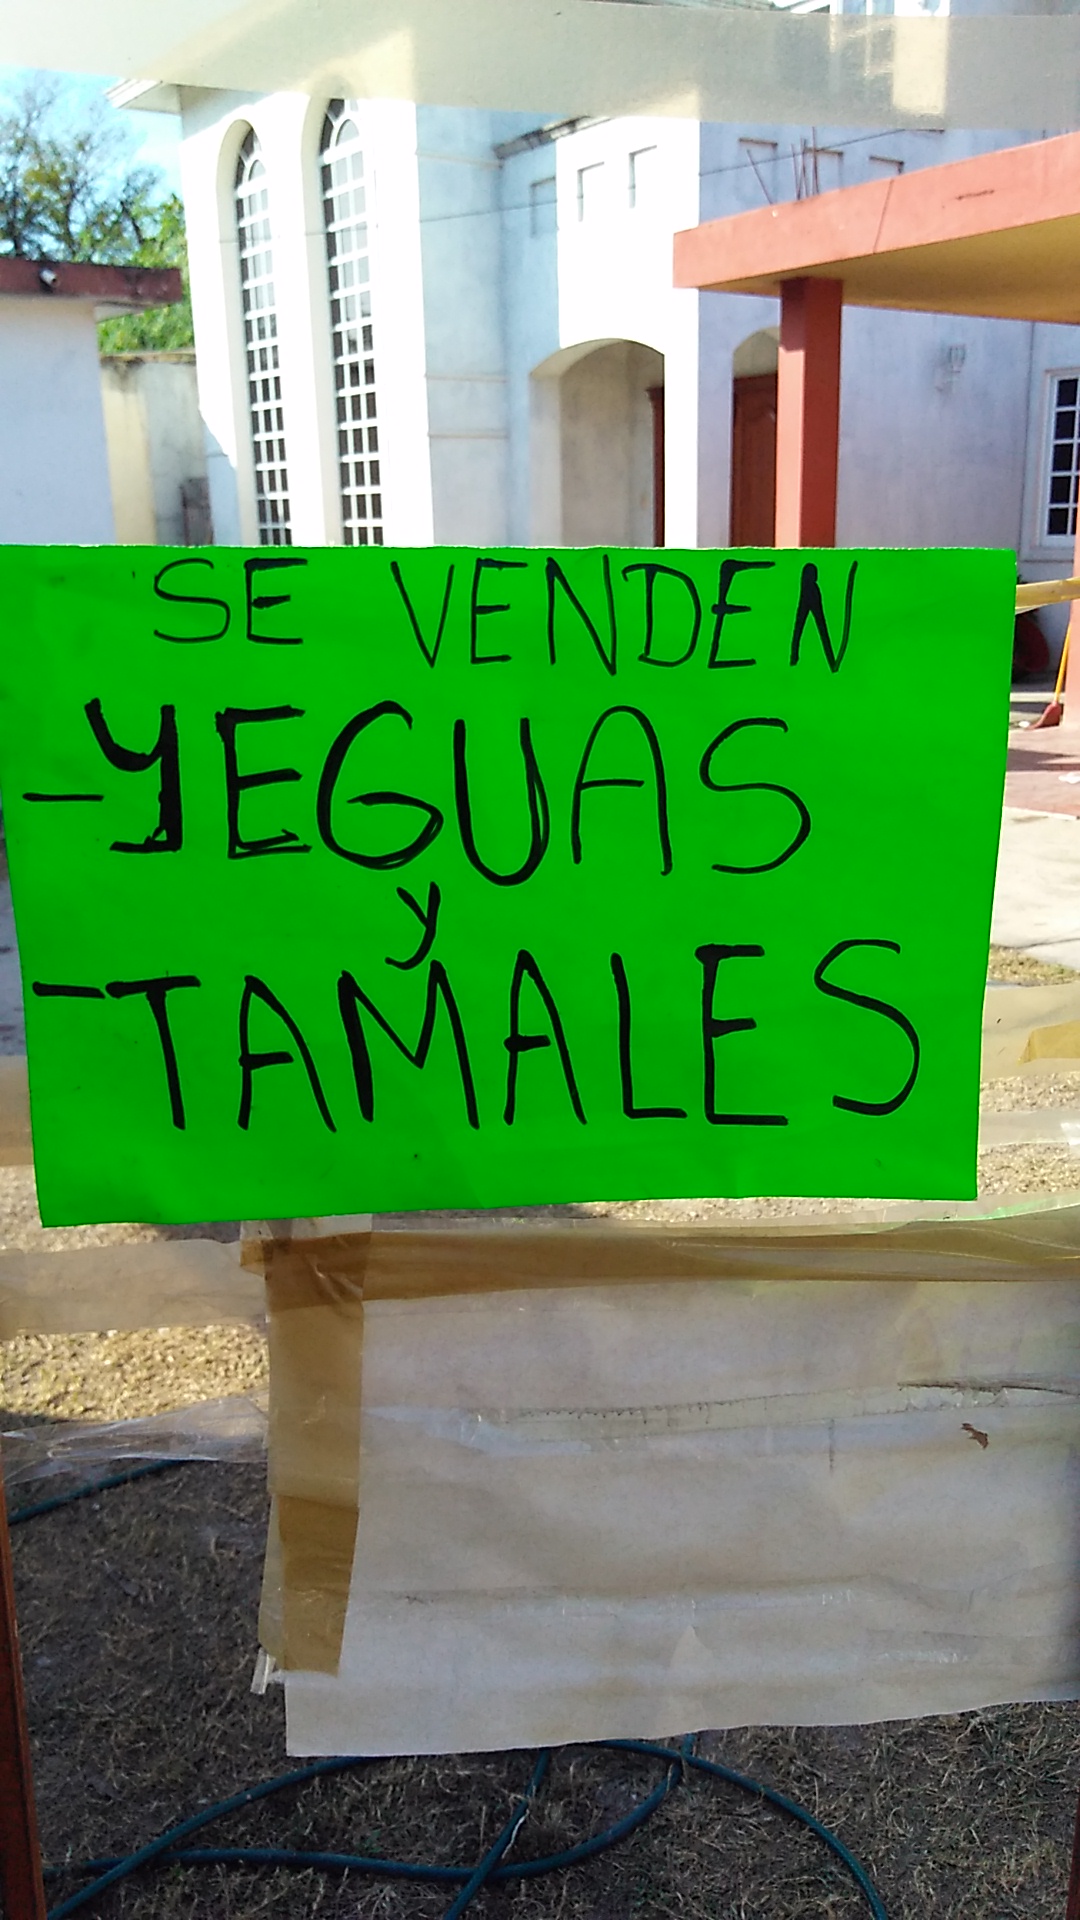 SE VENDEN
-YEGUAS
y
-TAMALES